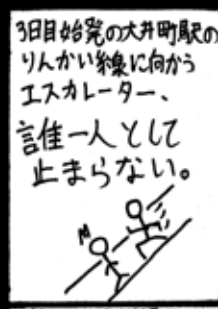 3日目始発の大井町駅の
りんかい線に向かう
エスカレーター、
誰一人として
止まらない。